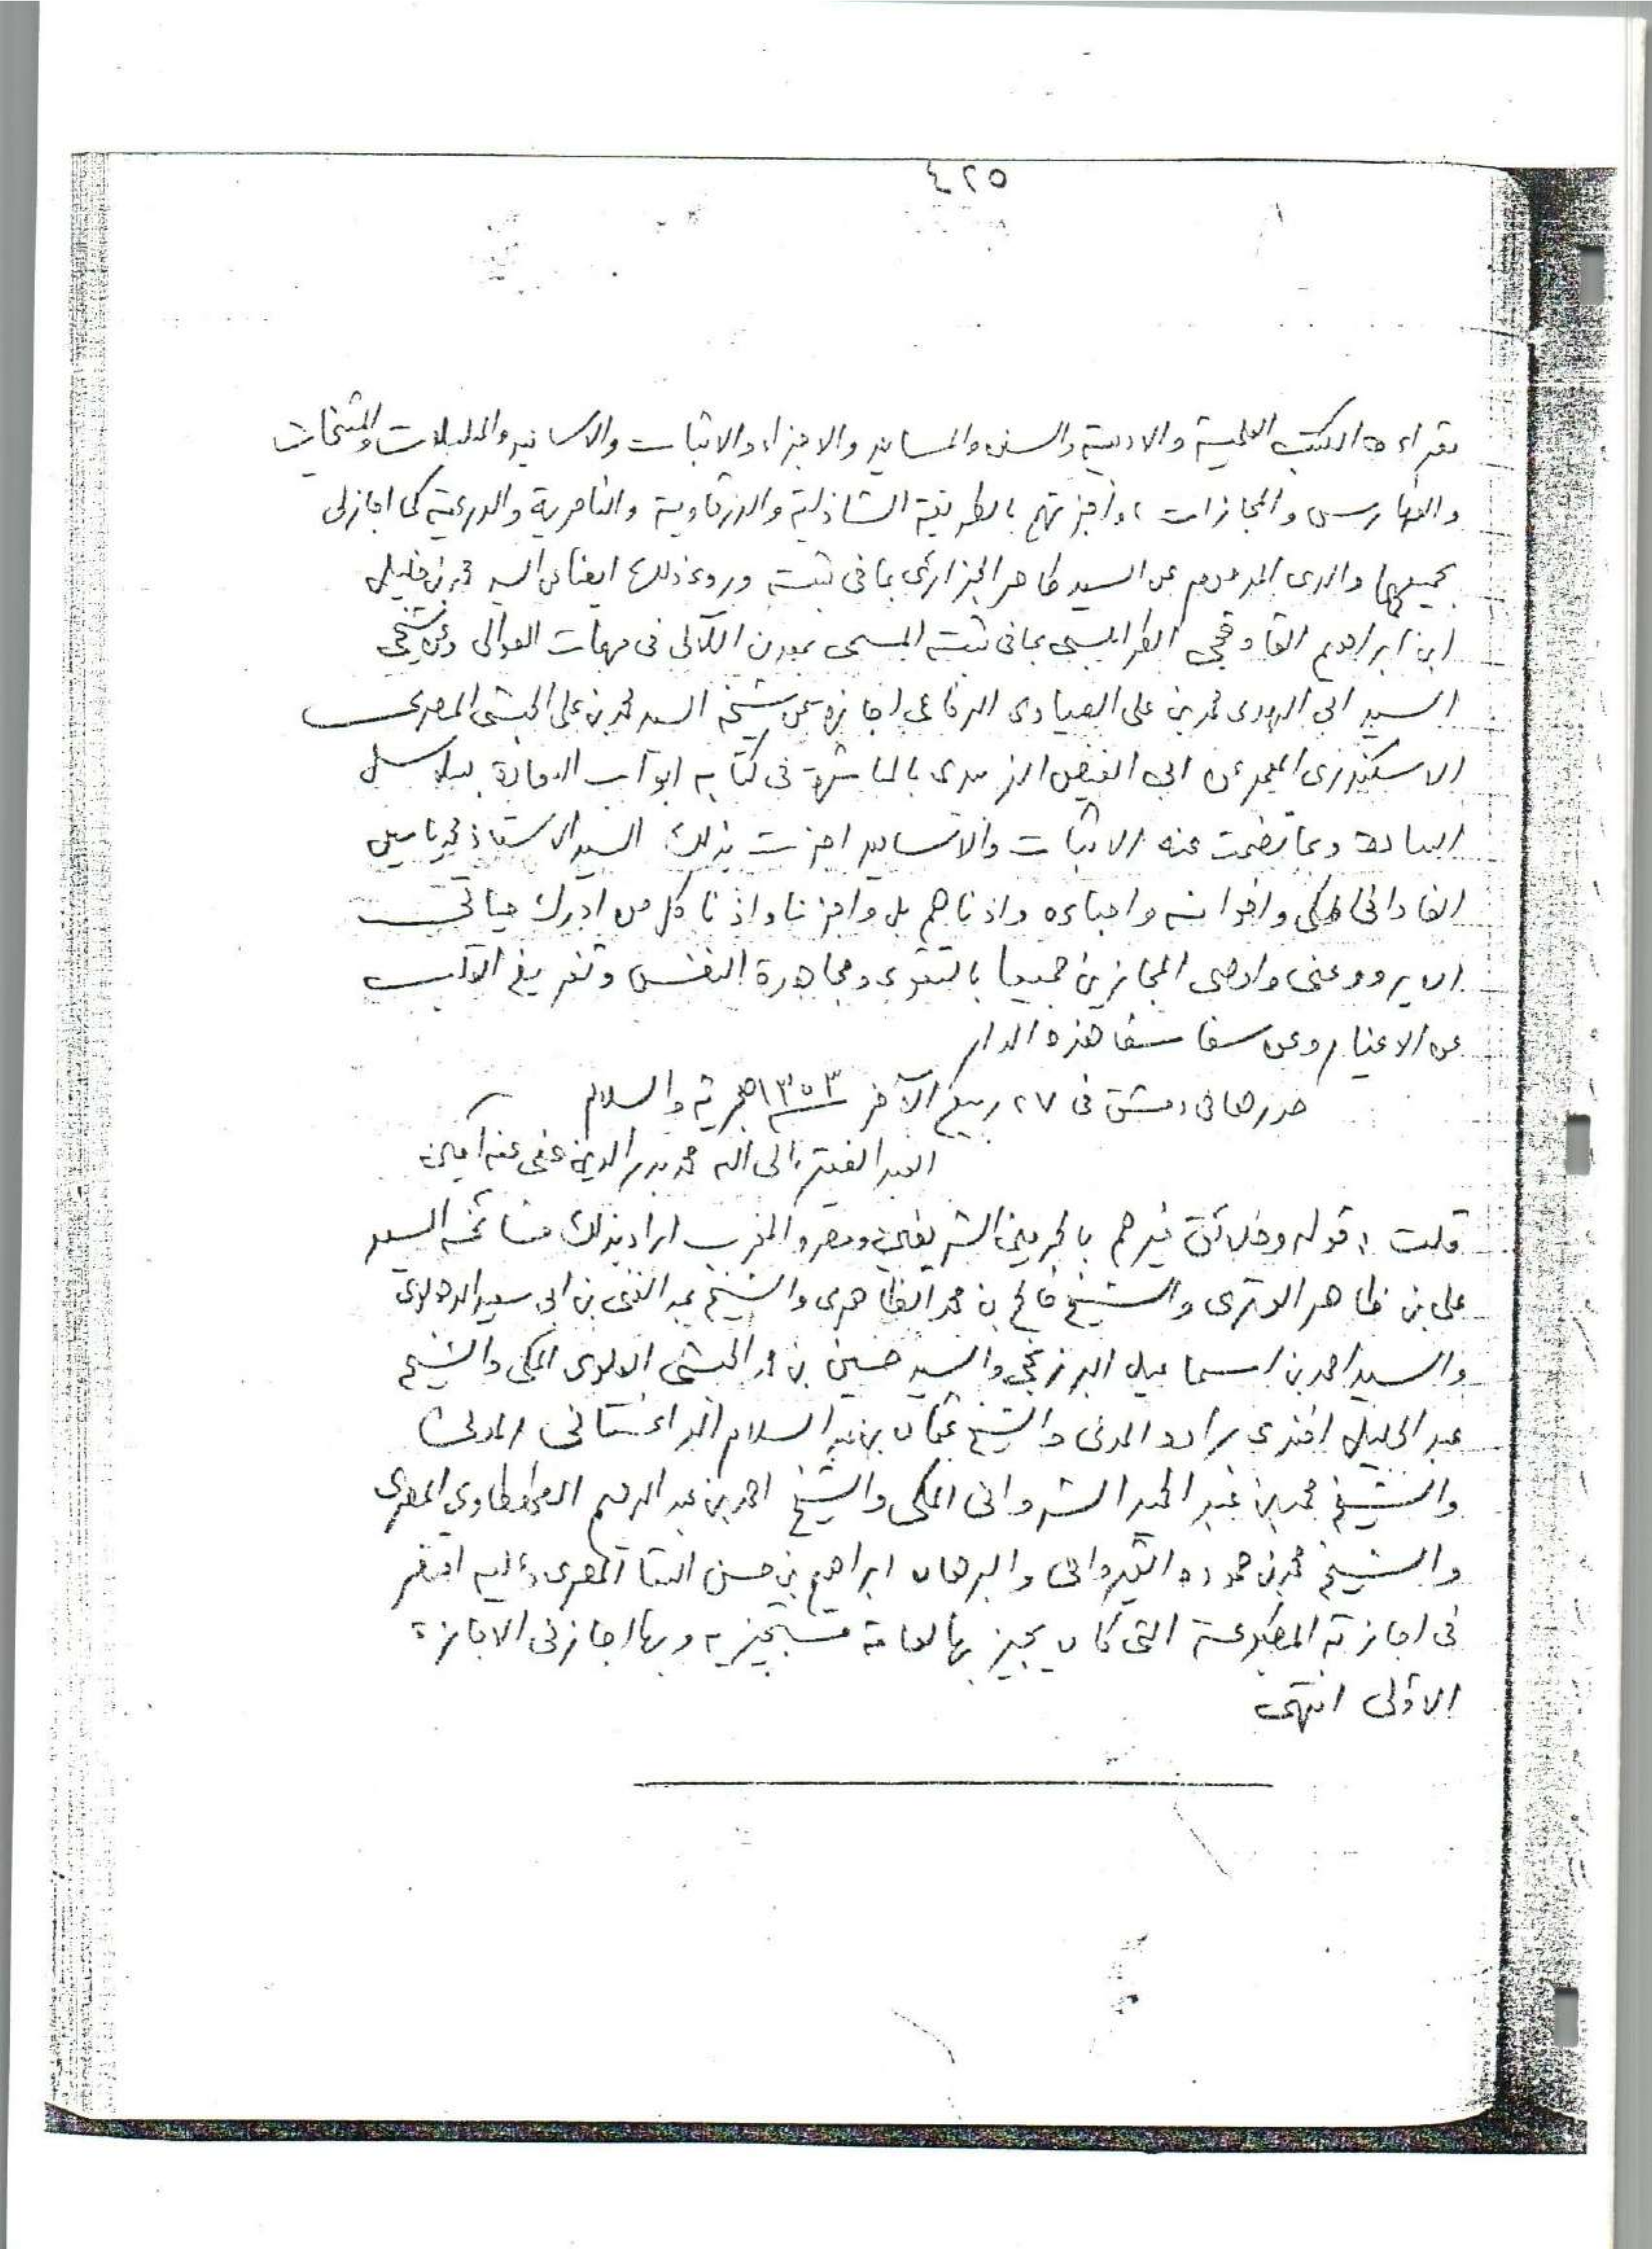 ٤٢٥
بقراءة الكتب العلمية والادبية والسنن والمسانيد والاجزاء والاثبات والاسانيد والمسلسلات والمشيخات
والفهارس والمجازات، واجزتهم بالطريقة الشاذلية والدرقاوية والناصرية والدرعية كما اجازنى
بجميعها والدى المرحوم عن السيد طاهر الجزائرى بما فى ثبته وروى ذلك ايضا عن السيد محمد بن خليل
ابن ابراهيم القاوقجى الطرابلسى بما فى ثبته المسمى بمعدن اللآلى فى مهمات العوالى وعن شيخى
السيد ابى الهدى محمد بن على الصيادى الرفاعى اجازة عن شيخه السيد محمد بن على الحبشى المصرى
الاسكندرى المعمر عن ابى الفيض الزبيدى بالمباشرة فى كتابه ابواب السعادة بسلاسل
السادة وبما تضمنت عنه الاثبات والاسانيد اجزت بذلك السيد الاستاذ محمد ياسين
الفادانى المكى واخوانه واحباءه واذناهم بل واجزنا واذنا كل من ادرك حياتى
ان يروو عنى واوصى المجازين جميعا بالتقوى ومجاهدة النفس وتفريغ القلب
عن الاغيار وعن سفاسف هذه الدار
حررها فى دمشق فى ٢٧ ربيع الآخر ١٣٥٣ هجرية والسلام
العبد الفقير الى الله محمد بدر الدين عفى عنه آمين
قلت: قوله وخلائق غيرهم بالحرمين الشريفين ومصر والمغرب اراد بذلك مشائخه السيد
على بن ظاهر الوترى والشيخ فالح بن محمد الظاهرى والشيخ عبد الغنى بن ابى سعيد الدهلوى
والسيد احمد بن اسماعيل البرزنجى والسيد حسين بن محمد الحبشى العلوى المكى والشيخ
عبد الجليل افندى براده المدنى والشيخ عثمان بن عبد السلام الداغستانى المدنى
والشيخ محمد بن عبد الحميد الشروانى المكى والشيخ احمد بن عبد الرحيم الطهطاوى المصرى
والشيخ محمد بن حموده القيروانى والبرهان ابراهيم بن حسن السقا المصرى وعليه اقتصر
فى اجازته المطبوعة التى كان يجيز بها لعامة مستجيزيه وبها اجازنى الاجازة
الاولى انتهى